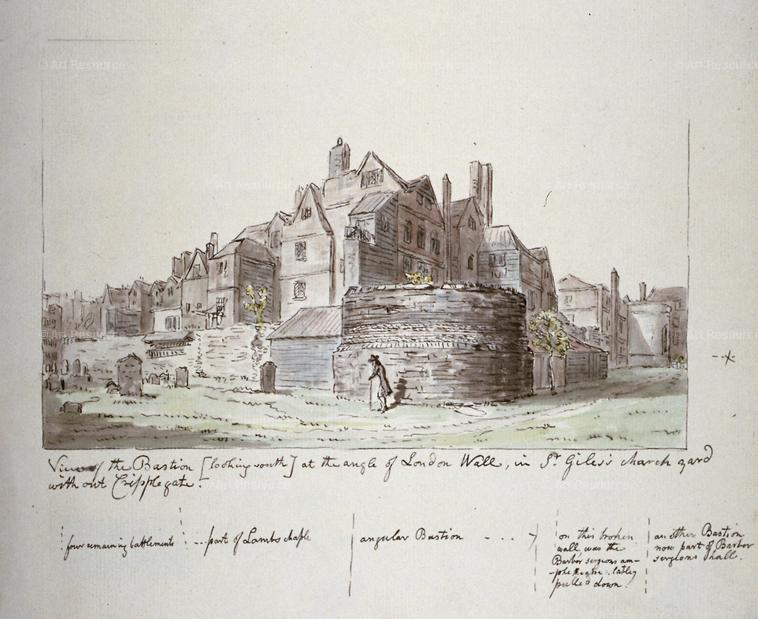 View of the Bastion [looking south] at the angle of London Wall, in St. Giles's church yard
without Cripplegate.
four remaining battlements
part of Lambs chaple
angular Bastion
on this broken
wall was the
Barber surgions am-
-phitheatre: latley
pulled down.
an other Bastion
now part of Barbor
surgions hall.
Art Resource